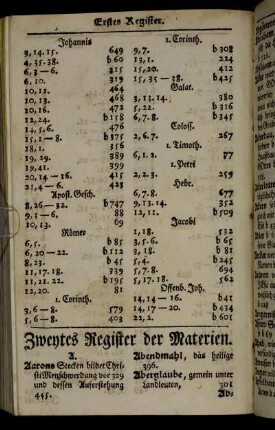 Erstes Register.
Johannis
3, 14. 15. 649
4, 35. 38. b 60
6, 3 — 6. 315
6, 10. 313
10, 13. 464
10, 13. 468
10, 16. 472
12, 24. b 158
14, 5. 6. 476
15, 1 — 8. b 175
18, 1. 356
19, 29. 389
19, 41. 399
20, 14 — 16. 415
21, 4 — 6. 423
Apost. Gesch.
8, 26 — 32. b 747
9, 1 — 6, 88
10, 13. 69
Römer
6, 5. b 85
6, 20 — 22. b 112
8, 23. b 45
11, 17. 18. 739
11, 17. 22. b 195
12, 20. 81
1. Corinth.
3, 6 — 8. 579
5, 6 — 8. 403
1. Corinth.
9, 7. b 308
13, 1. 224
15, 20. 412
15, 35 — 38. b 425
Galat.
3, 13. 14. 380
5, 22. b 316
6, 7. 8. b 345
Coloss.
2, 6. 7. 267
1. Timoth.
6, 1. 2. 77
1. Petri
2, 2. 3. 259
Hebr.
6, 7. 8. 677
9, 13. 14. 352
12, 11. b 509
Jacobi
1, 18. 532
3, 5. 6. b 65
3, 18. b 81
5, 4. b 246
5, 7. 8. 694
5, 17. 18. 562
Offenb. Joh.
14, 14 — 16. b 41
14, 17 — 20. b 434
22, 2. b 601
Zweytes Register der Materien.
A.
Aarons Stecken bildet Chri-
sti Menschwerdung vor 329
und dessen Auferstehung
445.
Abendmahl, das heilige
396.
Aberglaube, gemein unter
Landleuten, 301
Abs